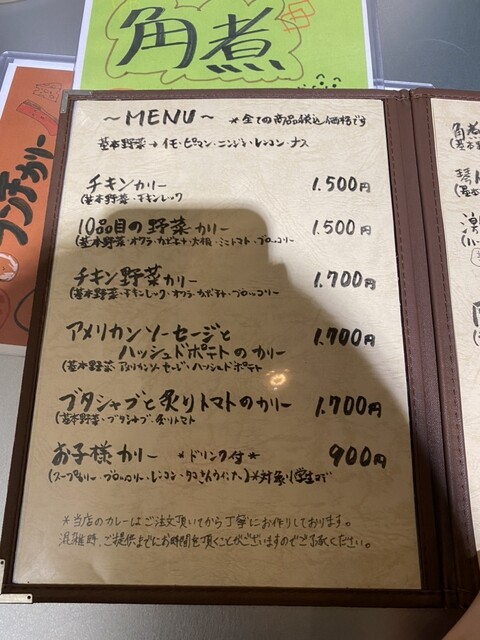 角煮
ランチカリー
～MENU～ *全ての商品税込価格です
基本野菜→イモ・ピーマン・ニンジン・レンコン・ナス
チキンカリー 1.500円
(基本野菜・チキンレッグ
10品目の野菜カリー 1.500円
(基本野菜・オクラ・カボチャ・大根・ミニトマト・ブロッコリー
チキン野菜カリー 1.700円
(基本野菜・チキンレッグ・オクラ・カボチャ・ブロッコリー
アメリカンソーセージと 1.700円
ハッシュドポテトのカリー
(基本野菜 アメリカンソーセージ・ハッシュドポテト
ブタシャブと炙りトマトのカリー 1.700円
(基本野菜・ブタシャブ・炙りトマト
お子様カリー *ドリンク付* 900円
(スープカリー・ブロッコリー・レンコン・タコさんウインナー)*対象小学生まで
*当店のカレーはご注文頂いてから丁寧にお作りしております。
混雑時、ご提供までにお時間を頂くことがございますのでご了承ください。
角煮
(基本
(基本
激